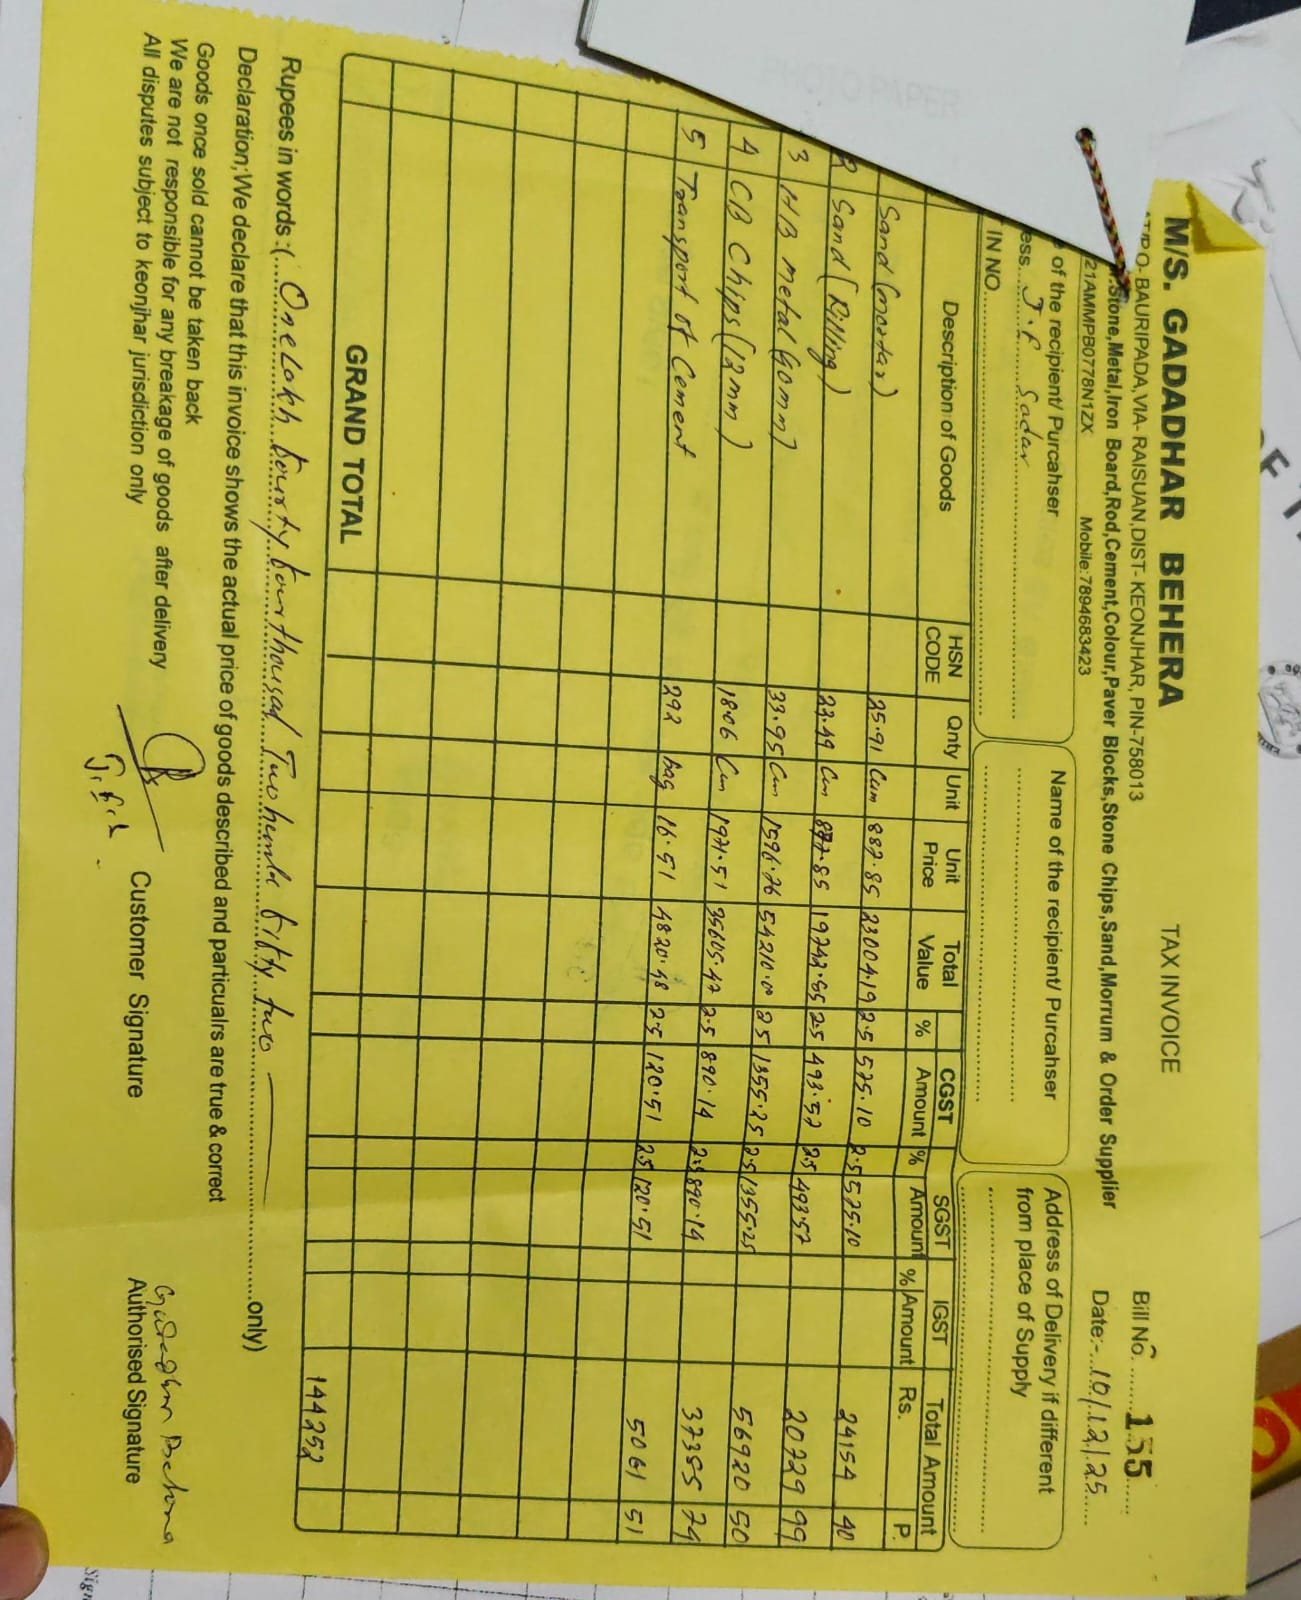 TAX INVOICE
Bill No. 155
M/S. GADADHAR BEHERA
AT/PO- BAURIPADA, VIA- RAISUAN, DIST- KEONJHAR, PIN-758013
Date:- 10/12/25
Stone,Metal,Iron Board,Rod,Cement,Colour,Paver Blocks,Stone Chips,Sand,Morrum & Order Supplier
21AMMPB0778N1ZX Mobile:7894683423
of the recipient/ Purcahser
ess... J.F Sadar
IN NO.
Name of the recipient/ Purcahser
Address of Delivery if different
from place of Supply
Description of Goods HSN CODE Qnty Unit Unit Price Total Value CGST % Amount SGST % Amount IGST % Amount Total Amount Rs. P.
Sand (mortar) 25.91 Cum 887.85 23004.19 2.5 575.10 2.5 575.10 24154 40
2 Sand (filling) 22.49 Cm 877.85 19742.85 2.5 493.57 2.5 493.57 20729 99
3 HB metal (40mm) 33.95 Cm 1596.76 54210.00 2.5 1355.25 2.5 1355.25 56920 50
4 CB Chips (12mm) 18.06 Cm 1971.51 35605.47 2.5 890.14 2.5 890.14 37385 74
5 Transport of Cement 292 bag 16.51 4820.48 2.5 120.51 2.5 120.51 5061 51
GRAND TOTAL 144252
Rupees in words:( One Lakh fourty four thousad Two hundr fifty two only)
Declaration;We declare that this invoice shows the actual price of goods described and particualrs are true & correct
Goods once sold cannot be taken back
We are not responsible for any breakage of goods after delivery
All disputes subject to keonjhar jurisdiction only
Customer Signature
Gadadhar Behera
Authorised Signature
PHOTO PAPER